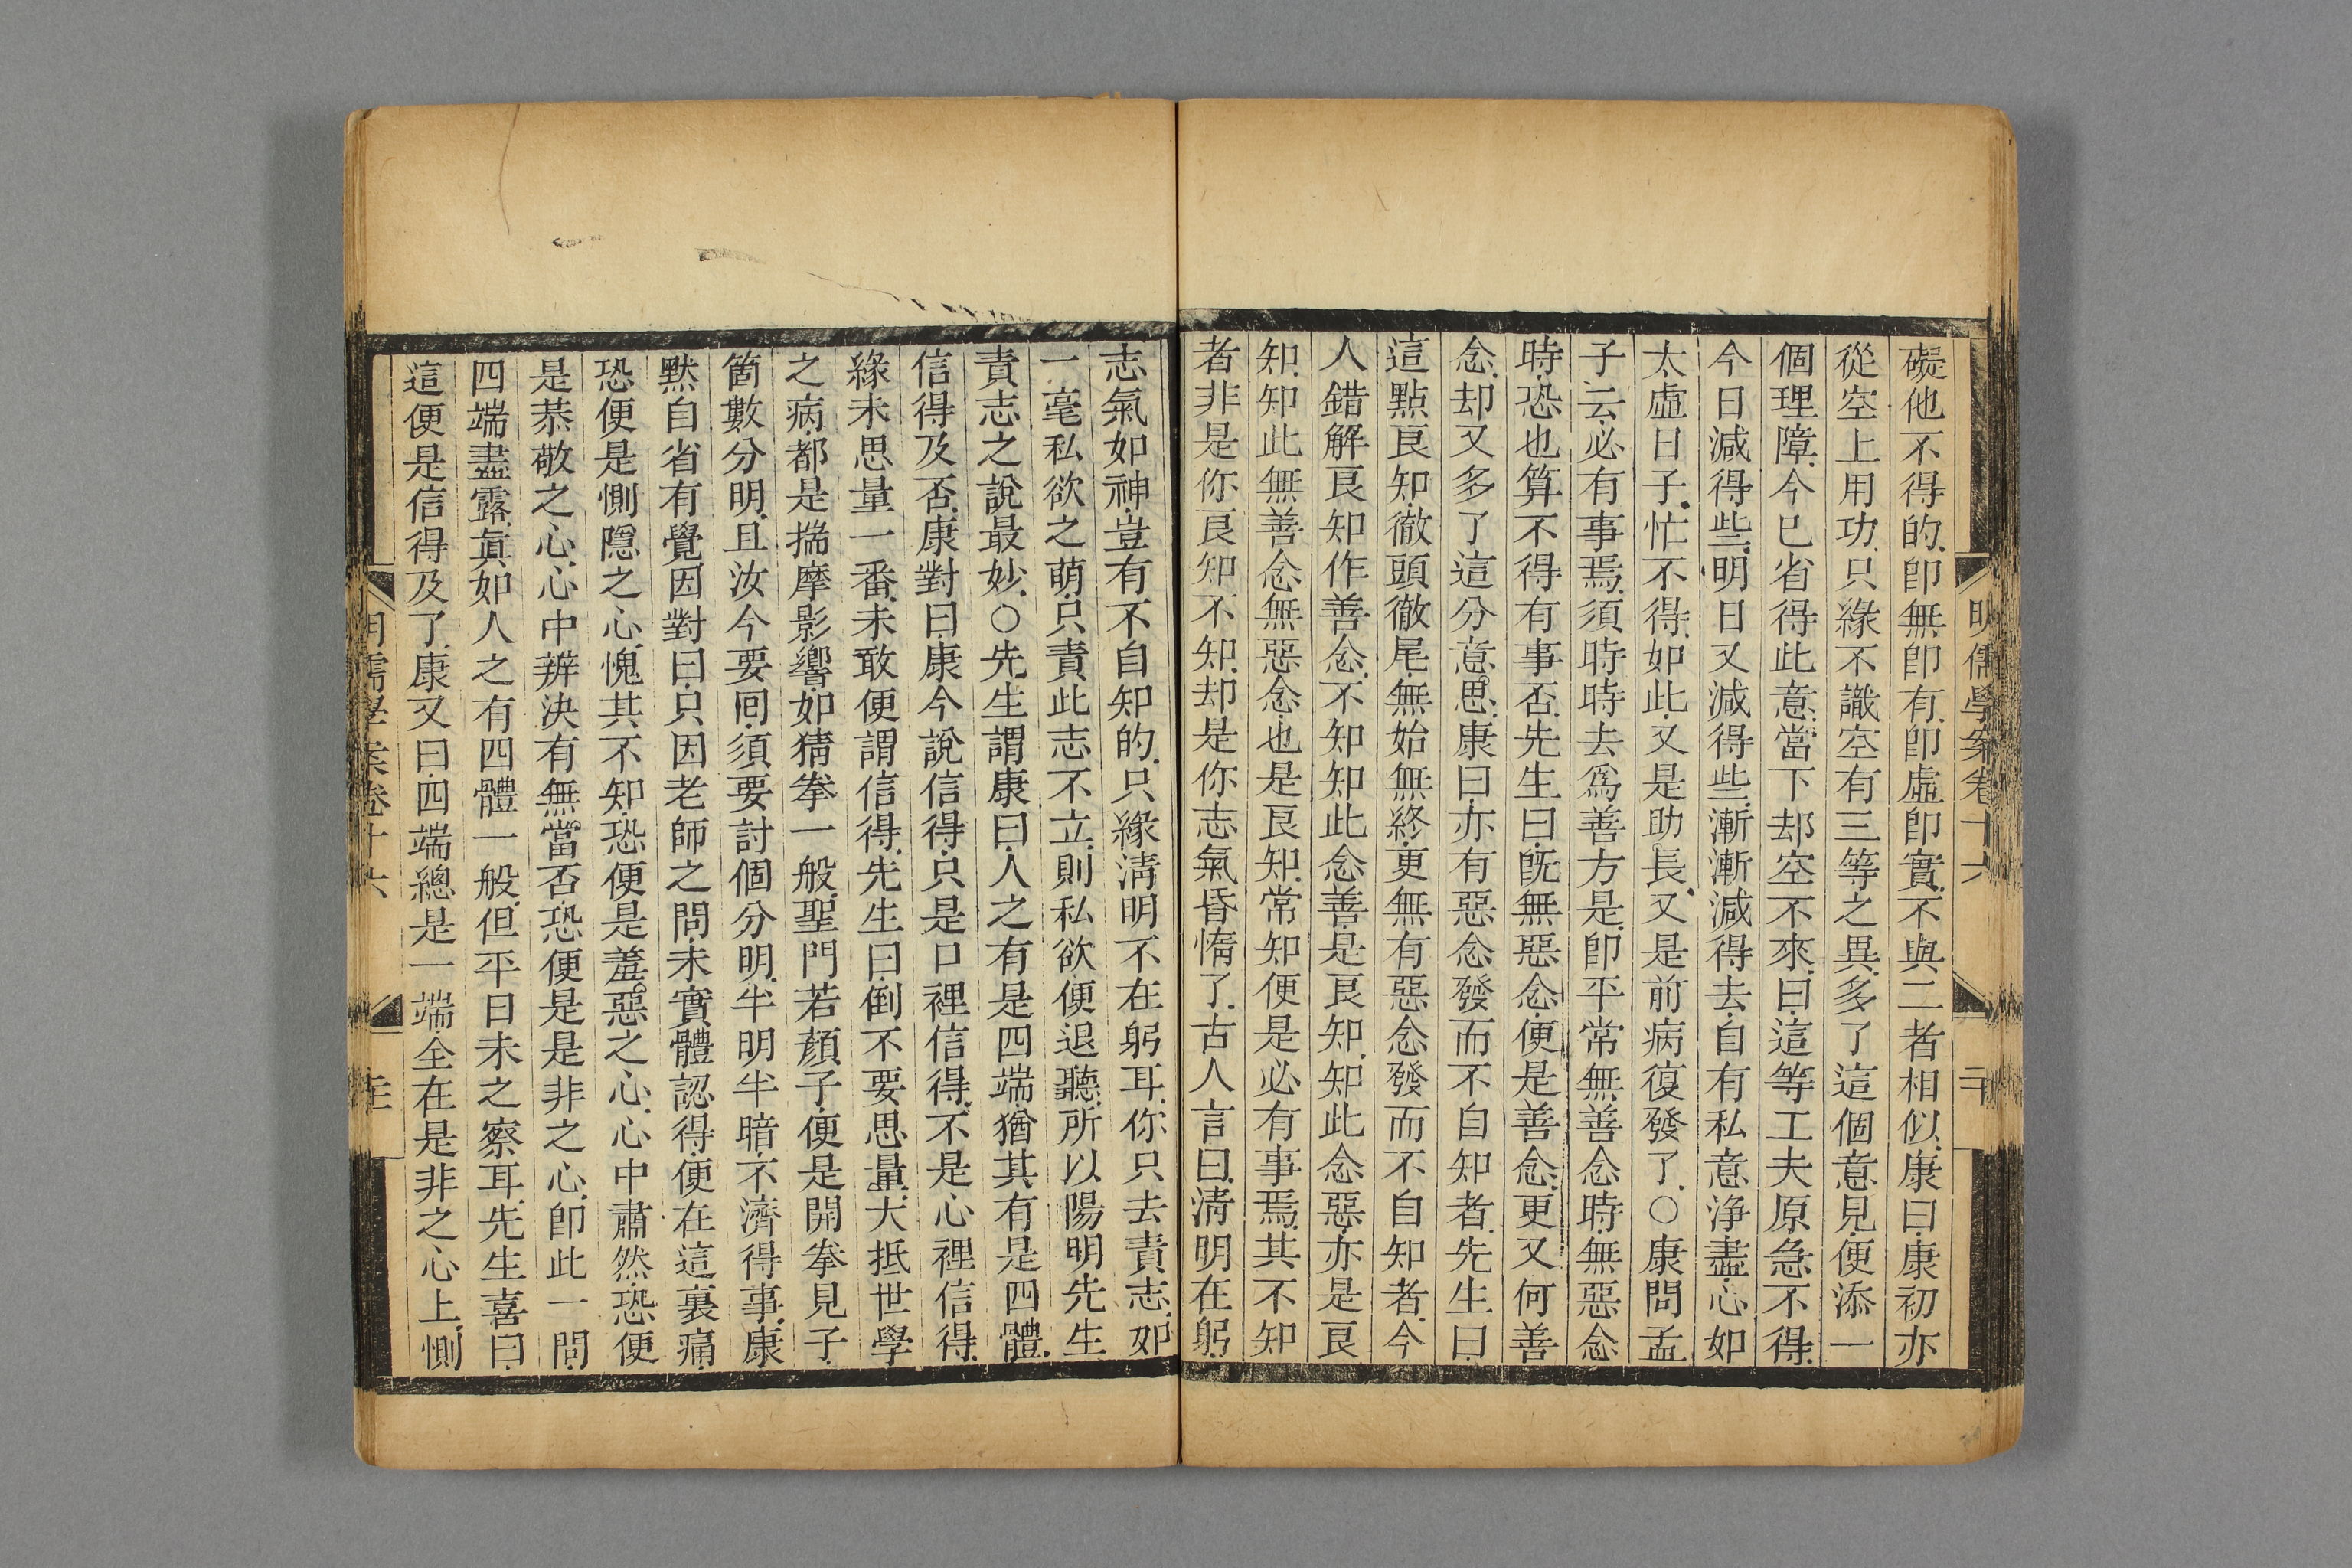 明儒學案卷十六
二十
礙他不得的卽無卽有卽虛卽實不與二者相似康曰康初亦
從空上用功只緣不識空有三等之異多了這個意見便添一
個理障今已省得此意當下却空不來曰這等工夫原急不得
今日減得些明日又減得些漸漸減得去自有私意净盡心如
太虛日子忙不得如此又是助長又是前病復發了○康問孟
子云必有事焉須時時去爲善方是卽平常無善念時無惡念
時恐也算不得有事否先生曰旣無惡念便是善念更又何善
念却又多了這分意思康曰亦有惡念發而不自知者先生曰
這點良知徹頭徹尾無始無終更無有惡念發而不自知者今
人錯解良知作善念不知知此念善是良知知此念惡亦是良
知知此無善念無惡念也是良知常知便是必有事焉其不知
者非是你良知不知却是你志氣昏惰了古人言曰淸明在躬
志氣如神豈有不自知的只緣淸明不在躬耳你只去責志如
一毫私欲之萌只責此志不立則私欲便退聽所以陽明先生
責志之說最妙○先生謂康曰人之有是四端猶其有是四體
信得及否康對曰康今說信得只是口裡信得不是心裡信得
緣未思量一番未敢便謂信得先生曰倒不要思量大抵世學
之病都是揣摩影響如猜拳一般聖門若顏子便是開拳見子
箇數分明且汝今要回須要討個分明半明半暗不濟得事康
默自省有覺因對曰只因老師之問未實體認得便在這裏痛
恐便是惻隱之心愧其不知恐便是羞惡之心心中肅然恐便
是恭敬之心心中辨決有無當否恐便是是非之心卽此一問
四端盡露真如人之有四體一般但平日未之察耳先生喜曰
這便是信得及了康又曰四端總是一端全在是非之心上惻
明儒學案卷十六